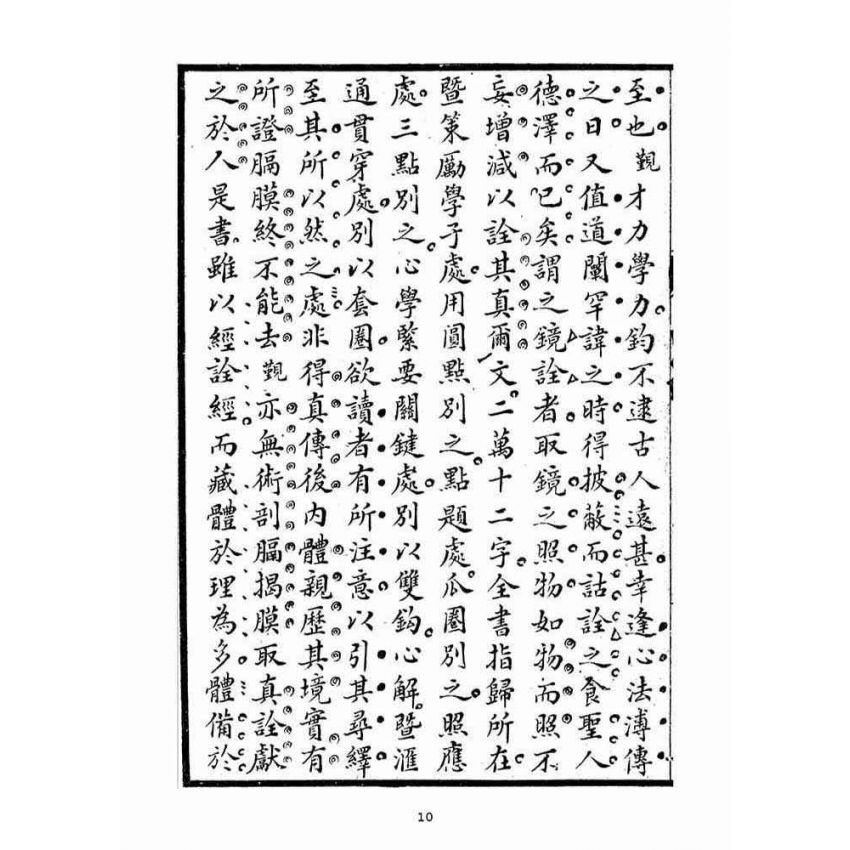 至也覲才力學力鈞不逮古人遠甚幸逢心法溥傳
之日又值道闡罕諱之時得披蔽而詁詮之食聖人
德澤而已矣謂之鏡詮者取鏡之照物如物而照不
妄增減以詮其真爾文二萬十二字全書指歸所在
暨策勵學子處用圓點別之點題處瓜圈別之照應
處三點別之心學緊要關鍵處別以雙鈎心解暨滙
通貫穿處別以套圈欲讀者有所注意以引其尋繹
至其所以然之處非得真傳後內體親歷其境實有
所證膈膜終不能去覲亦無術剖膈揭膜取真詮獻
之於人是書雖以經詮經而藏體於理為多體備於
10